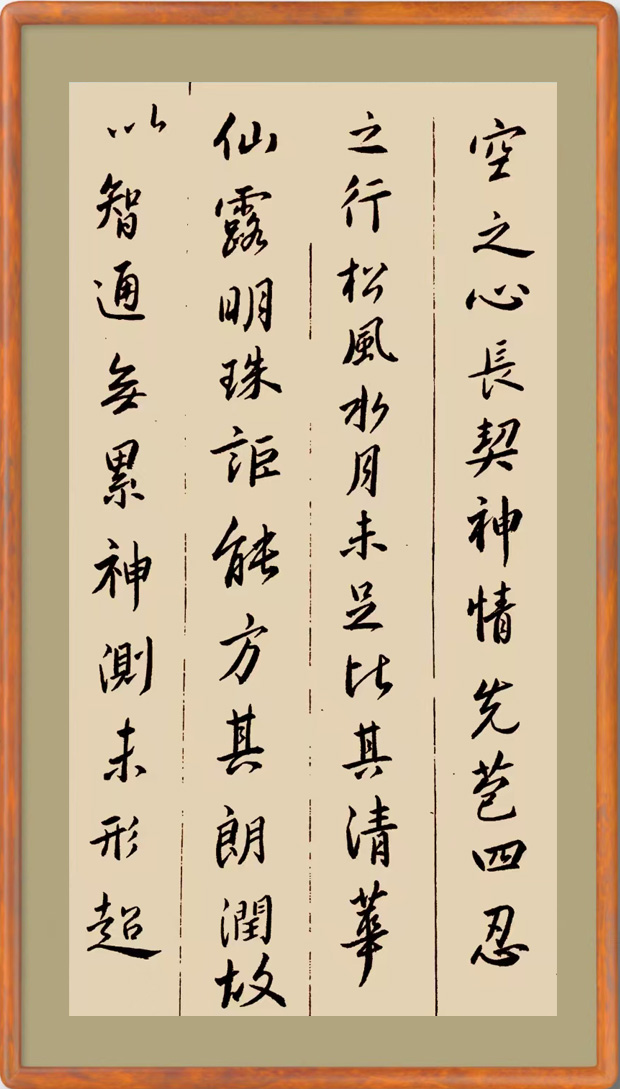 空之心長契神情先苞四忍
之行松風水月未足比其清華
仙露明珠詎能方其朗潤故
以智通無累神測未形超